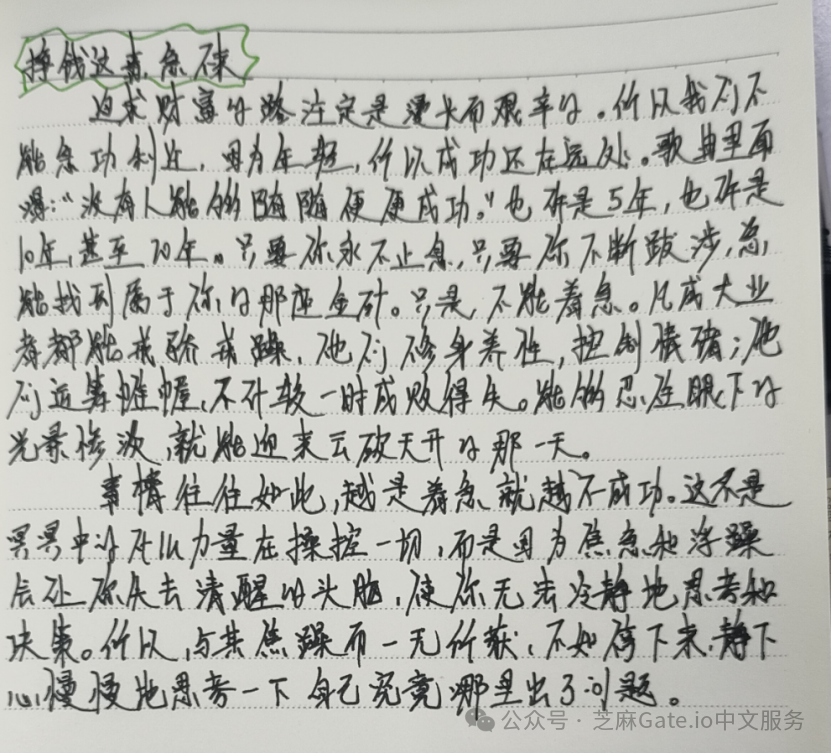 挣钱这事急不来
追求财富的路注定是漫长而艰辛的。所以我们不
能急功利近，因为年轻，所以成功还在远处。歌曲里面
得："没有人能够随随便便成功。"也许是5年，也许是
10年，甚至20年。只要你永不止息，只要你不断跋涉，总
能找到属于你的那座金矿。只是，不能着急。凡成大业
者都能戒骄戒躁，他们修身养性，控制情绪；他
们运筹帷幄，不计较一时成败得失。能够忍住眼下的
光景惨淡，就能迎来云破天开的那一天。
事情往往如此，越是着急，就越不成功。这不是
冥冥中的力量在操控一切，而是因为焦急和浮躁
会让你失去清醒的头脑，使你无法冷静地思考和
决策。所以，与其焦躁而一无所获，不如停下来，静下
心慢慢地思考一下自己究竟哪里出了问题。
公众号·芝麻Gate.io中文服务